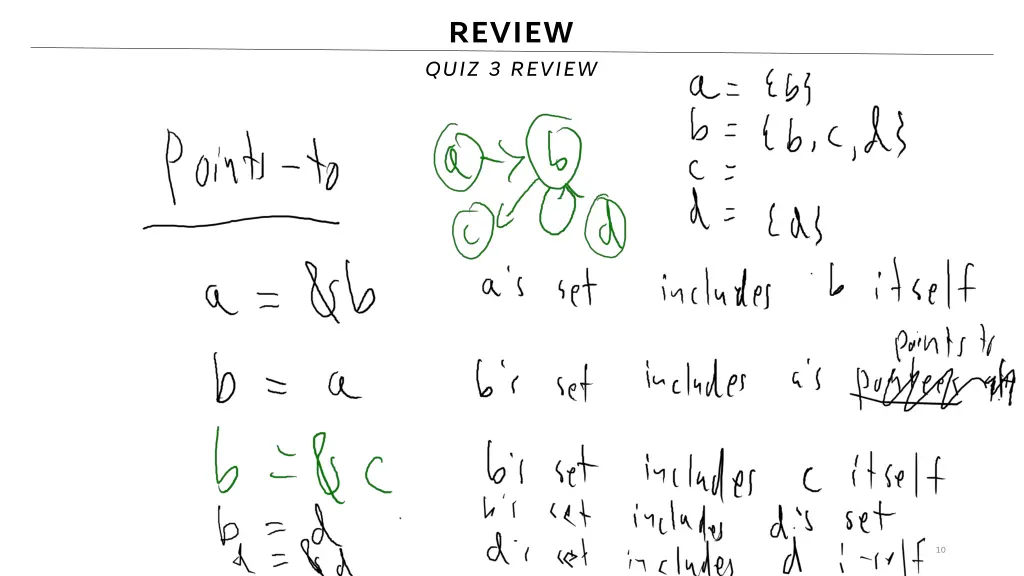 REVIEW
QUIZ 3 REVIEW
a = {b}
b = {b, c, d}
c =
d = {d}
Points-to
a b
c d
a = &b a's set includes b itself
points to
b = a b's set includes a's
b = & c b's set includes c itself
b = d b's set includes d's set
d = &d d's set includes d itself
10